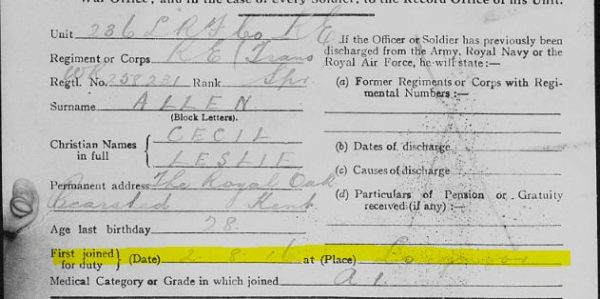 War Office, and in the case of every Soldier, to the Record Office of his Unit.
Unit 236 L R Y Co R.E
Regiment or Corps R E (Trans
Regtl. No. WR 258231 Rank Spr.
Surname ALLEN
(Block Letters).
Christian Names in full { CECIL
LESLIE
Permanent address The Royal Oak
Bearsted Kent
Age last birthday 28
First joined for duty } (Date) 2 8 16 at (Place)
Medical Category or Grade in which joined A 1.
If the Officer or Soldier has previously been
discharged from the Army, Royal Navy or the
Royal Air Force, he will state :—
(a) Former Regiments or Corps with Regi-
mental Numbers :—
(b) Dates of discharge
(c) Causes of discharge
(d) Particulars of Pension or Gratuity
received (if any) :—